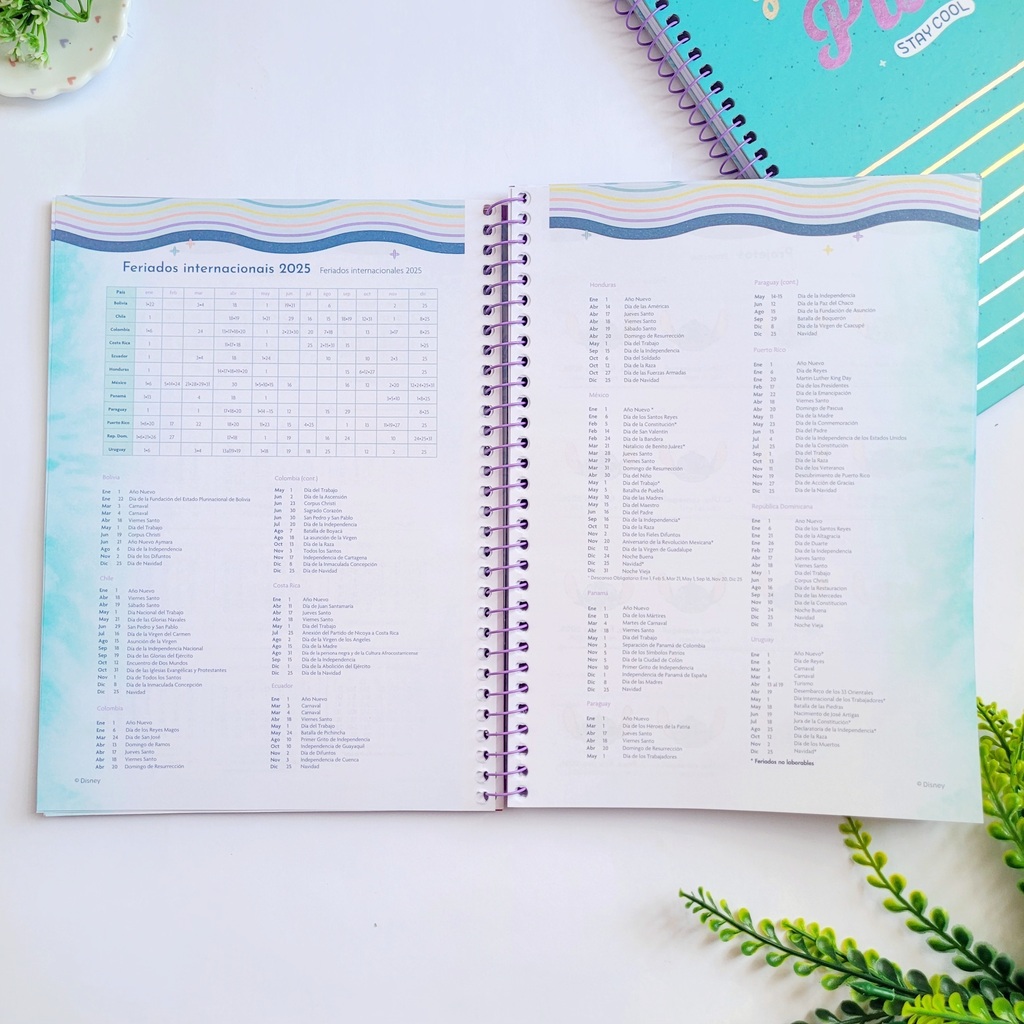 STAY COOL
Feriados internacionais 2025 Feriados internacionales 2025
País ene feb mar abr may jun jul ago sep oct nov dic
Bolivia
Chile
Colombia
Costa Rica
Ecuador
Honduras
México
Panamá
Paraguay
Puerto Rico
Rep. Dom.
Uruguay
Bolivia
Ene 1 Año Nuevo
Ene 22 Día de la Fundación del Estado Plurinacional de Bolivia
Mar 3 Carnaval
Mar 4 Carnaval
Abr 18 Viernes Santo
May 1 Día del Trabajo
Jun 19 Corpus Christi
Jun 21 Año Nuevo Aymara
Ago 6 Día de la Independencia
Nov 2 Día de los Difuntos
Dic 25 Día de Navidad
Chile
Ene 1 Año Nuevo
Abr 18 Viernes Santo
Abr 19 Sábado Santo
May 1 Día Nacional del Trabajo
May 21 Día de las Glorias Navales
Jun 29 San Pedro y San Pablo
Jul 16 Día de la Virgen del Carmen
Ago 15 Asunción de la Virgen
Sep 18 Día de la Independencia Nacional
Sep 19 Día de las Glorias del Ejército
Oct 12 Encuentro de Dos Mundos
Oct 31 Día de las Iglesias Evangélicas y Protestantes
Nov 1 Día de Todos los Santos
Dic 8 Día de la Inmaculada Concepción
Dic 25 Navidad
Colombia
Ene 1 Año Nuevo
Ene 6 Día de los Reyes Magos
Mar 24 Día de San José
Abr 13 Domingo de Ramos
Abr 17 Jueves Santo
Abr 18 Viernes Santo
Abr 20 Domingo de Resurrección
© Disney
Colombia (cont.)
May 1 Día del Trabajo
Jun 2 Día de la Ascensión
Jun 23 Corpus Christi
Jun 30 Sagrado Corazón
Jun 30 San Pedro y San Pablo
Jul 20 Día de la Independencia
Ago 7 Batalla de Boyacá
Ago 18 La asunción de la Virgen
Oct 13 Día de la Raza
Nov 3 Todos los Santos
Nov 17 Independencia de Cartagena
Dic 8 Día de la Inmaculada Concepción
Dic 25 Día de Navidad
Costa Rica
Ene 1 Año Nuevo
Abr 11 Día de Juan Santamaría
Abr 17 Jueves Santo
Abr 18 Viernes Santo
May 1 Día del Trabajo
Jul 25 Anexión del Partido de Nicoya a Costa Rica
Ago 2 Día de la Virgen de los Ángeles
Ago 15 Día de la Madre
Ago 31 Día de la persona negra y de la Cultura Afrocostarricense
Sep 15 Día de la Independencia
Dic 1 Día de la Abolición del Ejército
Dic 25 Día de Navidad
Ecuador
Ene 1 Año Nuevo
Mar 3 Carnaval
Mar 4 Carnaval
Abr 18 Viernes Santo
May 1 Día del Trabajo
May 24 Batalla de Pichincha
Ago 10 Primer Grito de Independencia
Oct 10 Independencia de Guayaquil
Nov 2 Día de Difuntos
Nov 3 Independencia de Cuenca
Dic 25 Navidad
Honduras
Ene 1 Año Nuevo
Abr 14 Día de las Américas
Abr 17 Jueves Santo
Abr 18 Viernes Santo
Abr 19 Sábado Santo
Abr 20 Domingo de Resurrección
May 1 Día del Trabajo
Sep 15 Día de la Independencia
Oct 6 Día del Soldado
Oct 12 Día de la Raza
Oct 27 Día de las Fuerzas Armadas
Dic 25 Día de Navidad
México
Ene 1 Año Nuevo *
Ene 6 Día de los Santos Reyes
Feb 5 Día de la Constitución*
Feb 14 Día de San Valentín
Feb 24 Día de la Bandera
Mar 21 Natalicio de Benito Juárez*
Mar 28 Jueves Santo
Mar 29 Viernes Santo
Mar 31 Domingo de Resurrección
Abr 30 Día del Niño
May 1 Día del Trabajo*
May 5 Batalla de Puebla
May 10 Día de las Madres
May 15 Día del Maestro
Jun 16 Día del Padre
Sep 16 Día de la Independencia*
Oct 12 Día de la Raza
Nov 2 Día de los Fieles Difuntos
Nov 20 Aniversario de la Revolución Mexicana*
Dic 12 Día de la Virgen de Guadalupe
Dic 24 Noche Buena
Dic 25 Navidad*
Dic 31 Noche Vieja
* Descanso Obligatorio: Ene 1, Feb 5, Mar 21, May 1, Sep 16, Nov 20, Dic 25
Panamá
Ene 1 Año Nuevo
Ene 9 Día de los Mártires
Mar 4 Martes de Carnaval
Abr 18 Viernes Santo
May 1 Día del Trabajo
Nov 3 Separación de Panamá de Colombia
Nov 4 Día de los Símbolos Patrios
Nov 5 Día de la Ciudad de Colón
Nov 10 Primer Grito de Independencia
Nov 28 Independencia de Panamá de España
Dic 8 Día de las Madres
Dic 25 Navidad
Paraguay
Ene 1 Año Nuevo
Mar 1 Día de los Héroes de la Patria
Abr 17 Jueves Santo
Abr 18 Viernes Santo
Abr 20 Domingo de Resurrección
May 1 Día de los Trabajadores
Paraguay (cont.)
May 14-15 Día de la Independencia
Jun 12 Día de la Paz del Chaco
Ago 15 Día de la Fundación de Asunción
Sep 29 Batalla de Boquerón
Dic 8 Día de la Virgen de Caacupé
Dic 25 Navidad
Puerto Rico
Ene 1 Año Nuevo
Ene 6 Día de Reyes
Ene 20 Martin Luther King Day
Feb 17 Día de los Presidentes
Mar 22 Día de la Emancipación
Abr 18 Viernes Santo
Abr 20 Domingo de Pascua
May 11 Día de la Madre
May 23 Día de la Conmemoración
Jun 15 Día del Padre
Jul 4 Día de la Independencia de los Estados Unidos
Jul 25 Día de la Constitución
Sep 1 Día del Trabajo
Oct 13 Día de la Raza
Nov 11 Día de los Veteranos
Nov 19 Descubrimiento de Puerto Rico
Nov 27 Día de Acción de Gracias
Dic 25 Día de la Navidad
República Dominicana
Ene 1 Ano Nuevo
Ene 6 Día de los Santos Reyes
Ene 21 Día de la Altagracia
Ene 26 Día de Duarte
Feb 27 Día de la Independencia
Abr 17 Jueves Santo
Abr 18 Viernes Santo
May 1 Día del Trabajo
Jun 19 Corpus Christi
Ago 16 Día de la Restauración
Sep 24 Día de las Mercedes
Nov 10 Día de la Constitución
Dic 24 Noche Buena
Dic 25 Navidad
Dic 31 Noche Vieja
Uruguay
Ene 1 Año Nuevo*
Ene 6 Día de Reyes
Mar 3 Carnaval
Mar 4 Carnaval
Abr 13 al 19 Turismo
Abr 19 Desembarco de los 33 Orientales
May 1 Día Internacional de los Trabajadores*
May 18 Batalla de las Piedras
Jun 19 Nacimiento de José Artigas
Jul 18 Jura de la Constitución*
Ago 25 Declaratoria de la Independencia*
Oct 12 Día de la Raza
Nov 2 Día de los Muertos
Dic 25 Navidad*
* Feriados no laborables
© Disney